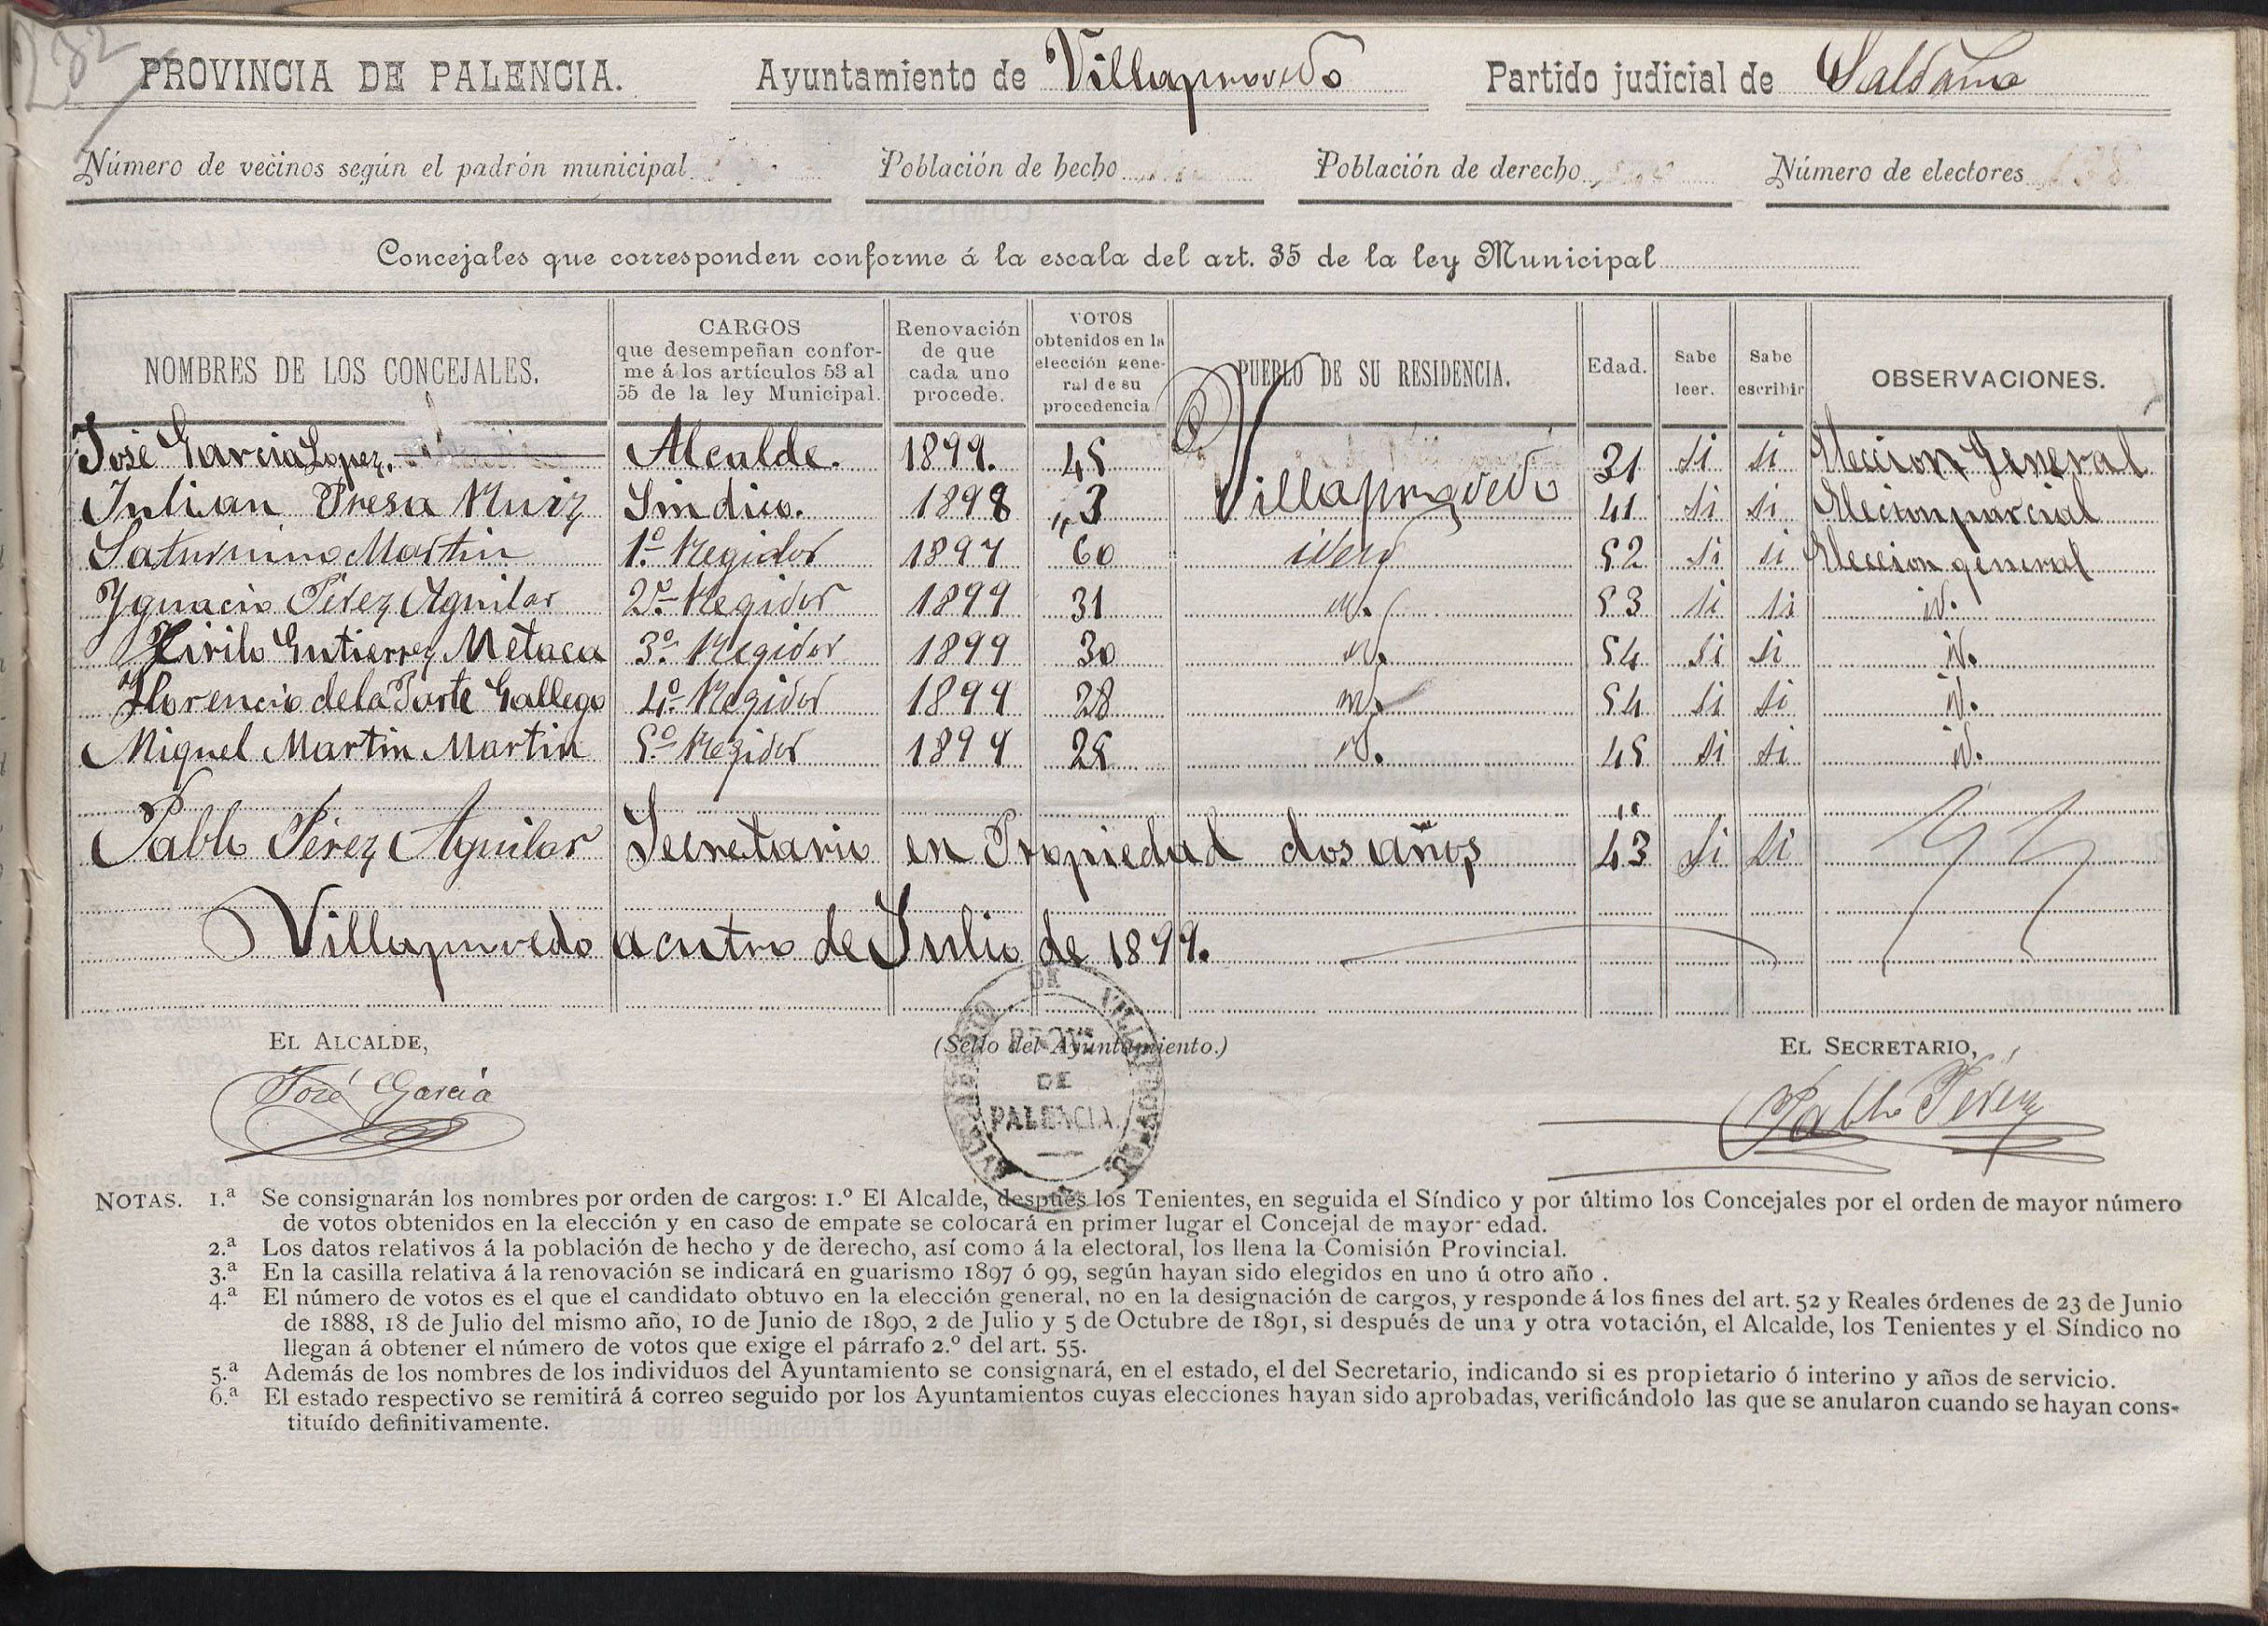 282
PROVINCIA DE PALENCIA. Ayuntamiento de Villaprovedo Partido judicial de Saldaña
Número de vecinos según el padrón municipal Población de hecho Población de derecho Número de electores 138
Concejales que corresponden conforme á la escala del art. 35 de la ley Municipal
NOMBRES DE LOS CONCEJALES. CARGOS que desempeñan conforme á los artículos 53 al 55 de la ley Municipal. Renovación de que cada uno procede. VOTOS obtenidos en la elección general de su procedencia PUEBLO DE SU RESIDENCIA. Edad. Sabe leer. Sabe escribir OBSERVACIONES.
José Garcia Lopez. Alcalde. 1899. 45 Villaprovedo 31 si si Eleccion General
Julian Presa Ruiz Sindico. 1898 „3 41 si si Elecion parcial
Saturnino Martin 1º Regidor 1897 60 idem 52 si si Eleccion general
Ygnacio Pérez Aguilar 2º Regidor 1899 31 id. 53 si si id.
Kirilo Gutierrez Metaca 3º Regidor 1899 30 id. 54 si si id.
Florencio de la Parte Gallego 4º Regidor 1899 28 id. 54 si si id.
Miguel Martin Martin 5º Regidor 1899 25 id. 45 si si id.
Pablo Pérez Aguilar Secretario en Propiedad dos años 43 Si Si
Villaprovedo a cutro de Julio de 1899.
EL ALCALDE, (Sello del Ayuntamiento.) EL SECRETARIO,
José García
AYUNTAMIENTO DE VILLAPROVEDO
PROVª DE PALENCIA
Pablo Pérez
NOTAS. 1.ª Se consignarán los nombres por orden de cargos: 1.º El Alcalde, después los Tenientes, en seguida el Síndico y por último los Concejales por el orden de mayor número
de votos obtenidos en la elección y en caso de empate se colocará en primer lugar el Concejal de mayor edad.
2.ª Los datos relativos á la población de hecho y de derecho, así como á la electoral, los llena la Comisión Provincial.
3.ª En la casilla relativa á la renovación se indicará en guarismo 1897 ó 99, según hayan sido elegidos en uno ú otro año .
4.ª El número de votos es el que el candidato obtuvo en la elección general, no en la designación de cargos, y responde á los fines del art. 52 y Reales órdenes de 23 de Junio
de 1888, 18 de Julio del mismo año, 10 de Junio de 1890, 2 de Julio y 5 de Octubre de 1891, si después de una y otra votación, el Alcalde, los Tenientes y el Síndico no
llegan á obtener el número de votos que exige el párrafo 2.º del art. 55.
5.ª Además de los nombres de los individuos del Ayuntamiento se consignará, en el estado, el del Secretario, indicando si es propietario ó interino y años de servicio.
6.ª El estado respectivo se remitirá á correo seguido por los Ayuntamientos cuyas elecciones hayan sido aprobadas, verificándolo las que se anularon cuando se hayan cons-
tituído definitivamente.